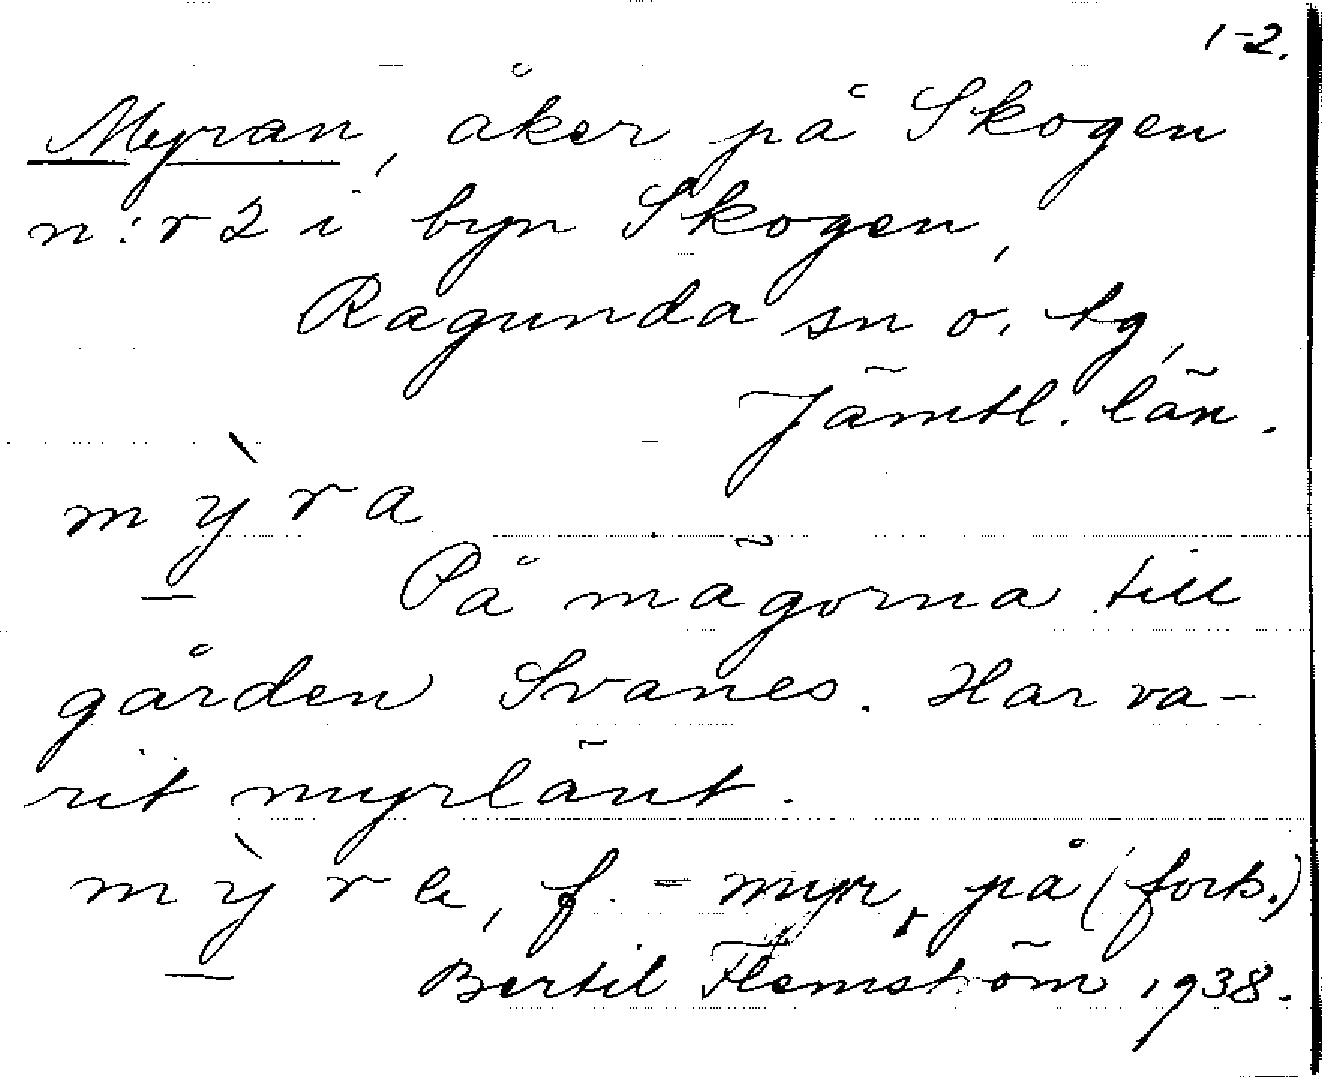 1-2.
Myran, åker på Skogen
n:r 2 i byn Skogen,
Ragunda sn o. tg,
Jämtl. län.
m ỳ r a
På mägorna till
gården Svanes. Har va-
rit myrlänt.
m ỳ r a, f. = myr, på (fork.)
Bertil Flemström 1938.